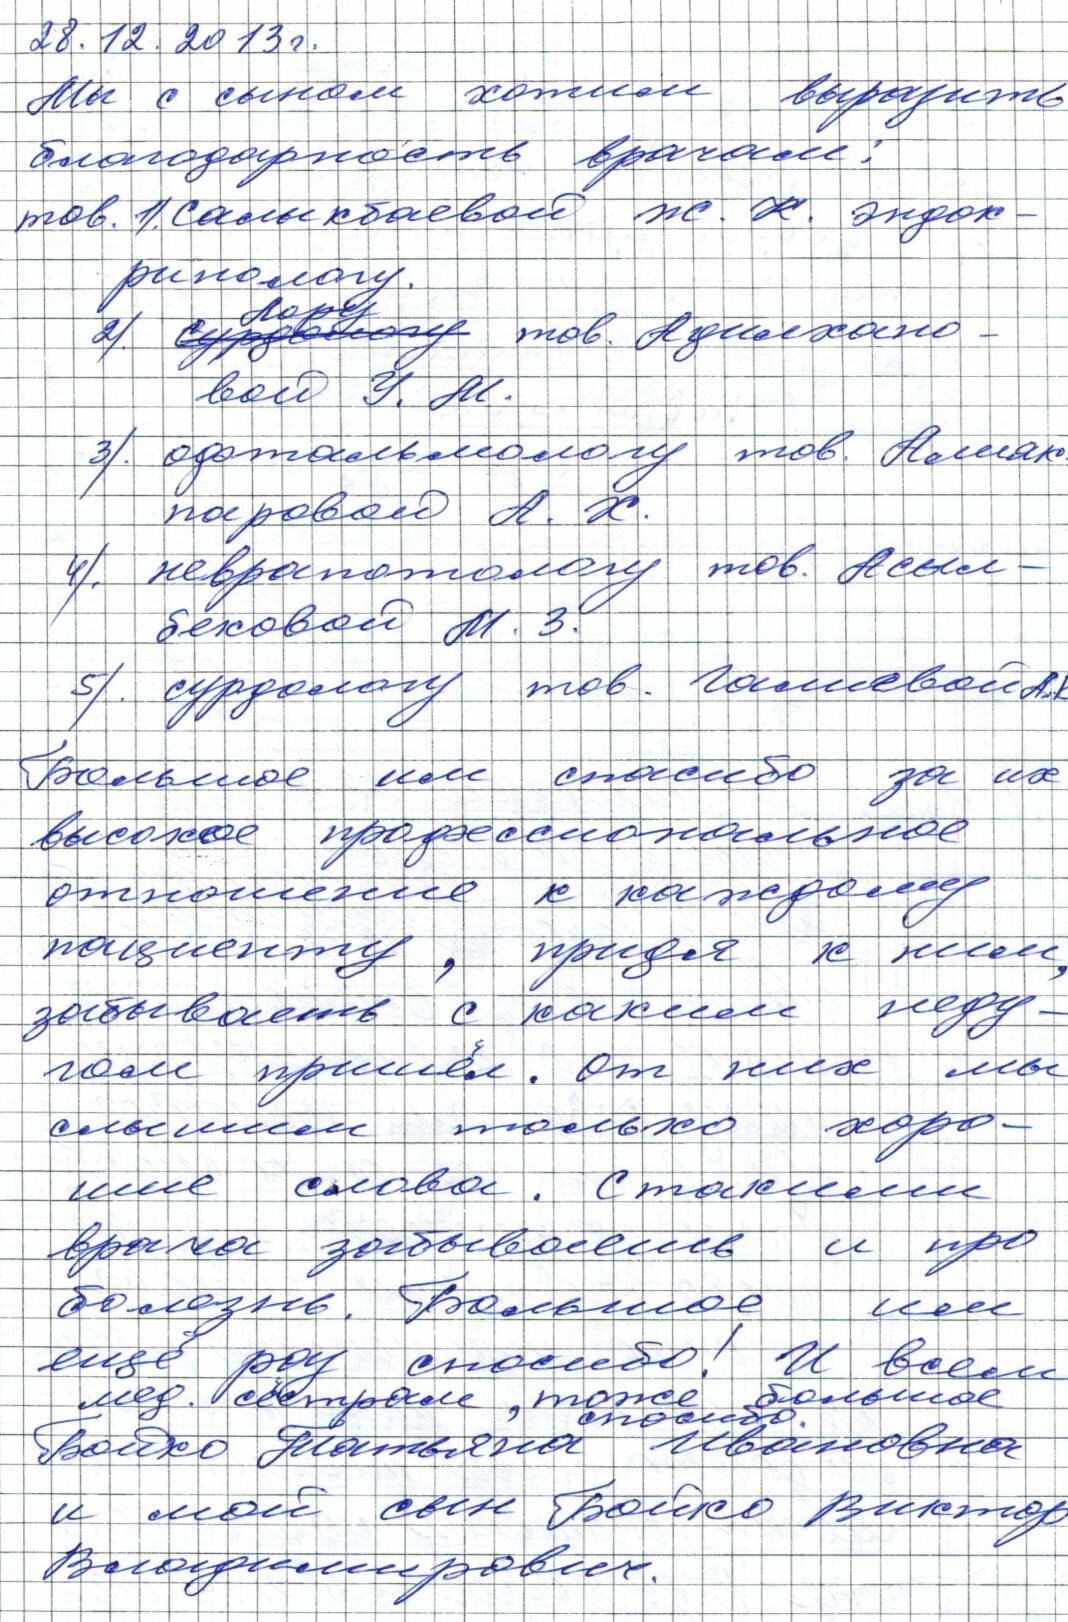 28.12.2013г.
Мы с сыном хотим выразить
благодарность врачам:
тов. 1). Салыкбаевой Ж. К. эндок-
ринологу.
Лору
2). сурдологу тов. Адилхано-
вой У. М.
3). офтальмологу тов. Алшак-
паровой А. Х.
4). неврапотологу тов. Асыл-
бековой М. З.
5). сурдологу тов. Галиевой А.К
Большое им спасибо за их
высокое профессиональное
отношение к каждому
пациенту, придя к ним,
забываешь с каким неду-
гом пришёл. От них мы
слышим только хоро-
шие слова. С такими
врача забываешь и про
болезнь. Большое им
ещё раз спасибо! И всем
мед. сёстрам, тоже большое
спасибо.
Бойко Татьяна Ивановна
и мой сын Бойко Виктор
Владимирович.